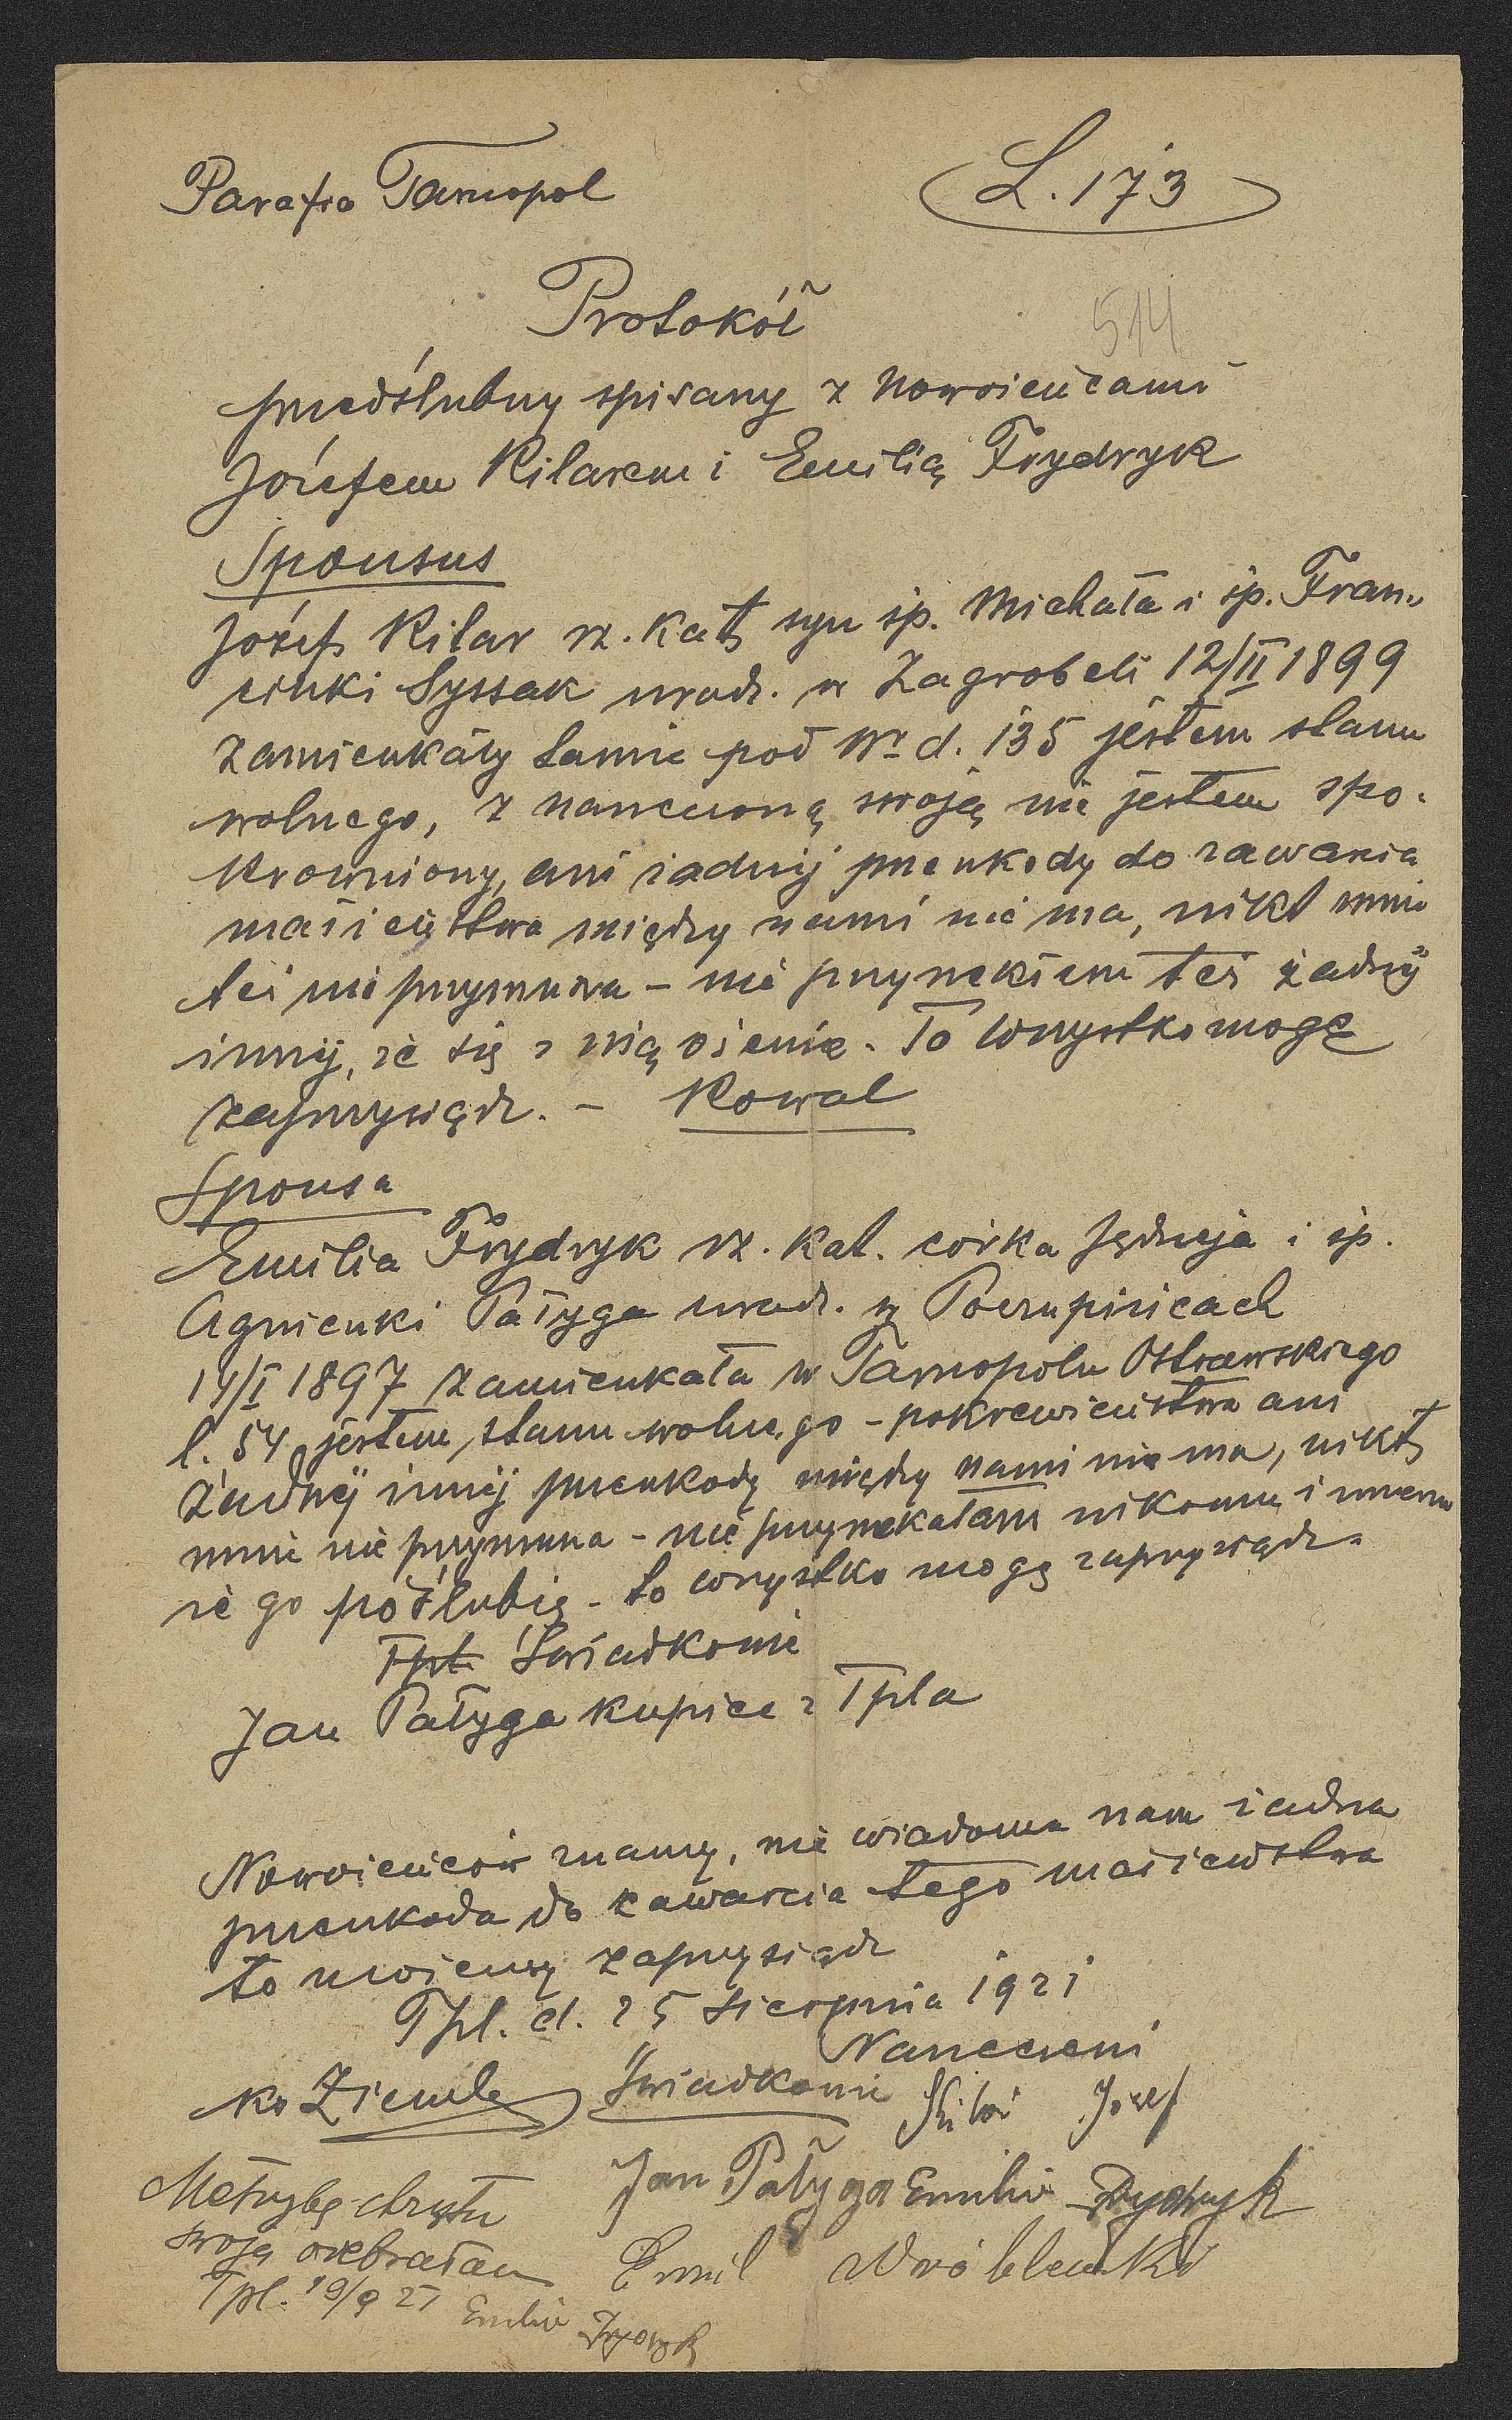 Parafia Tarnopol
L. 173
Protokół
514
przedślubny spisany z nowożeńcami
Józefem Kilarem i Emilią Frydryk
Sponsus
Józef Kilar rz. kat syn śp. Michała i śp. Fran-
ciszki Syssak urodz. w Zagrobeli 12/II 1899
zamieszkały tamże pod Nr d. 135 jestem stanu
wolnego, z narzeczoną swoją nie jestem spo-
krewniony, ani żadnej przeszkody do zawarcia
małżeństwa między nami nie ma, nikt mnie
też nie przymusza - nie przyrzekłem też żadnej
innej, że się z nią ożenię. To wszystko mogę
zaprzysiądz. - Kowal
Sponsa
Emilia Frydryk rz. kat. córka Jędrzeja i śp.
Agnieszki Patyga urodz. w Poczapińcach
14/I 1897 zamieszkała w Tarnopolu Ostrowskiego
l. 54 jestem stanu wolnego - pokrewieństwa ani
żadnej innej przeszkody między nami nie ma, nikt
mnie nie przymusza - nie przyrzekałam nikomu innemu
że go poślubię - to wszystko mogę zaprzysiądz.
Tpl. Świadkowie
Jan Patyga kupiec z Tpla
Nowożeńców znamy, nie wiadoma nam żadna
przeszkoda do zawarcia tego małżeństwa
to możemy zaprzysiądz
Tpl. d. 25 sierpnia 1921
Narzeczeni
ks Ziemba Świadkowie Kilar Józef
Jan Patyga Emilia Frydryk
Emil Wróblewski
Metrykę chrztu
swoją odebrałam
Tpl. 19/9 21 Emilia Frydryk